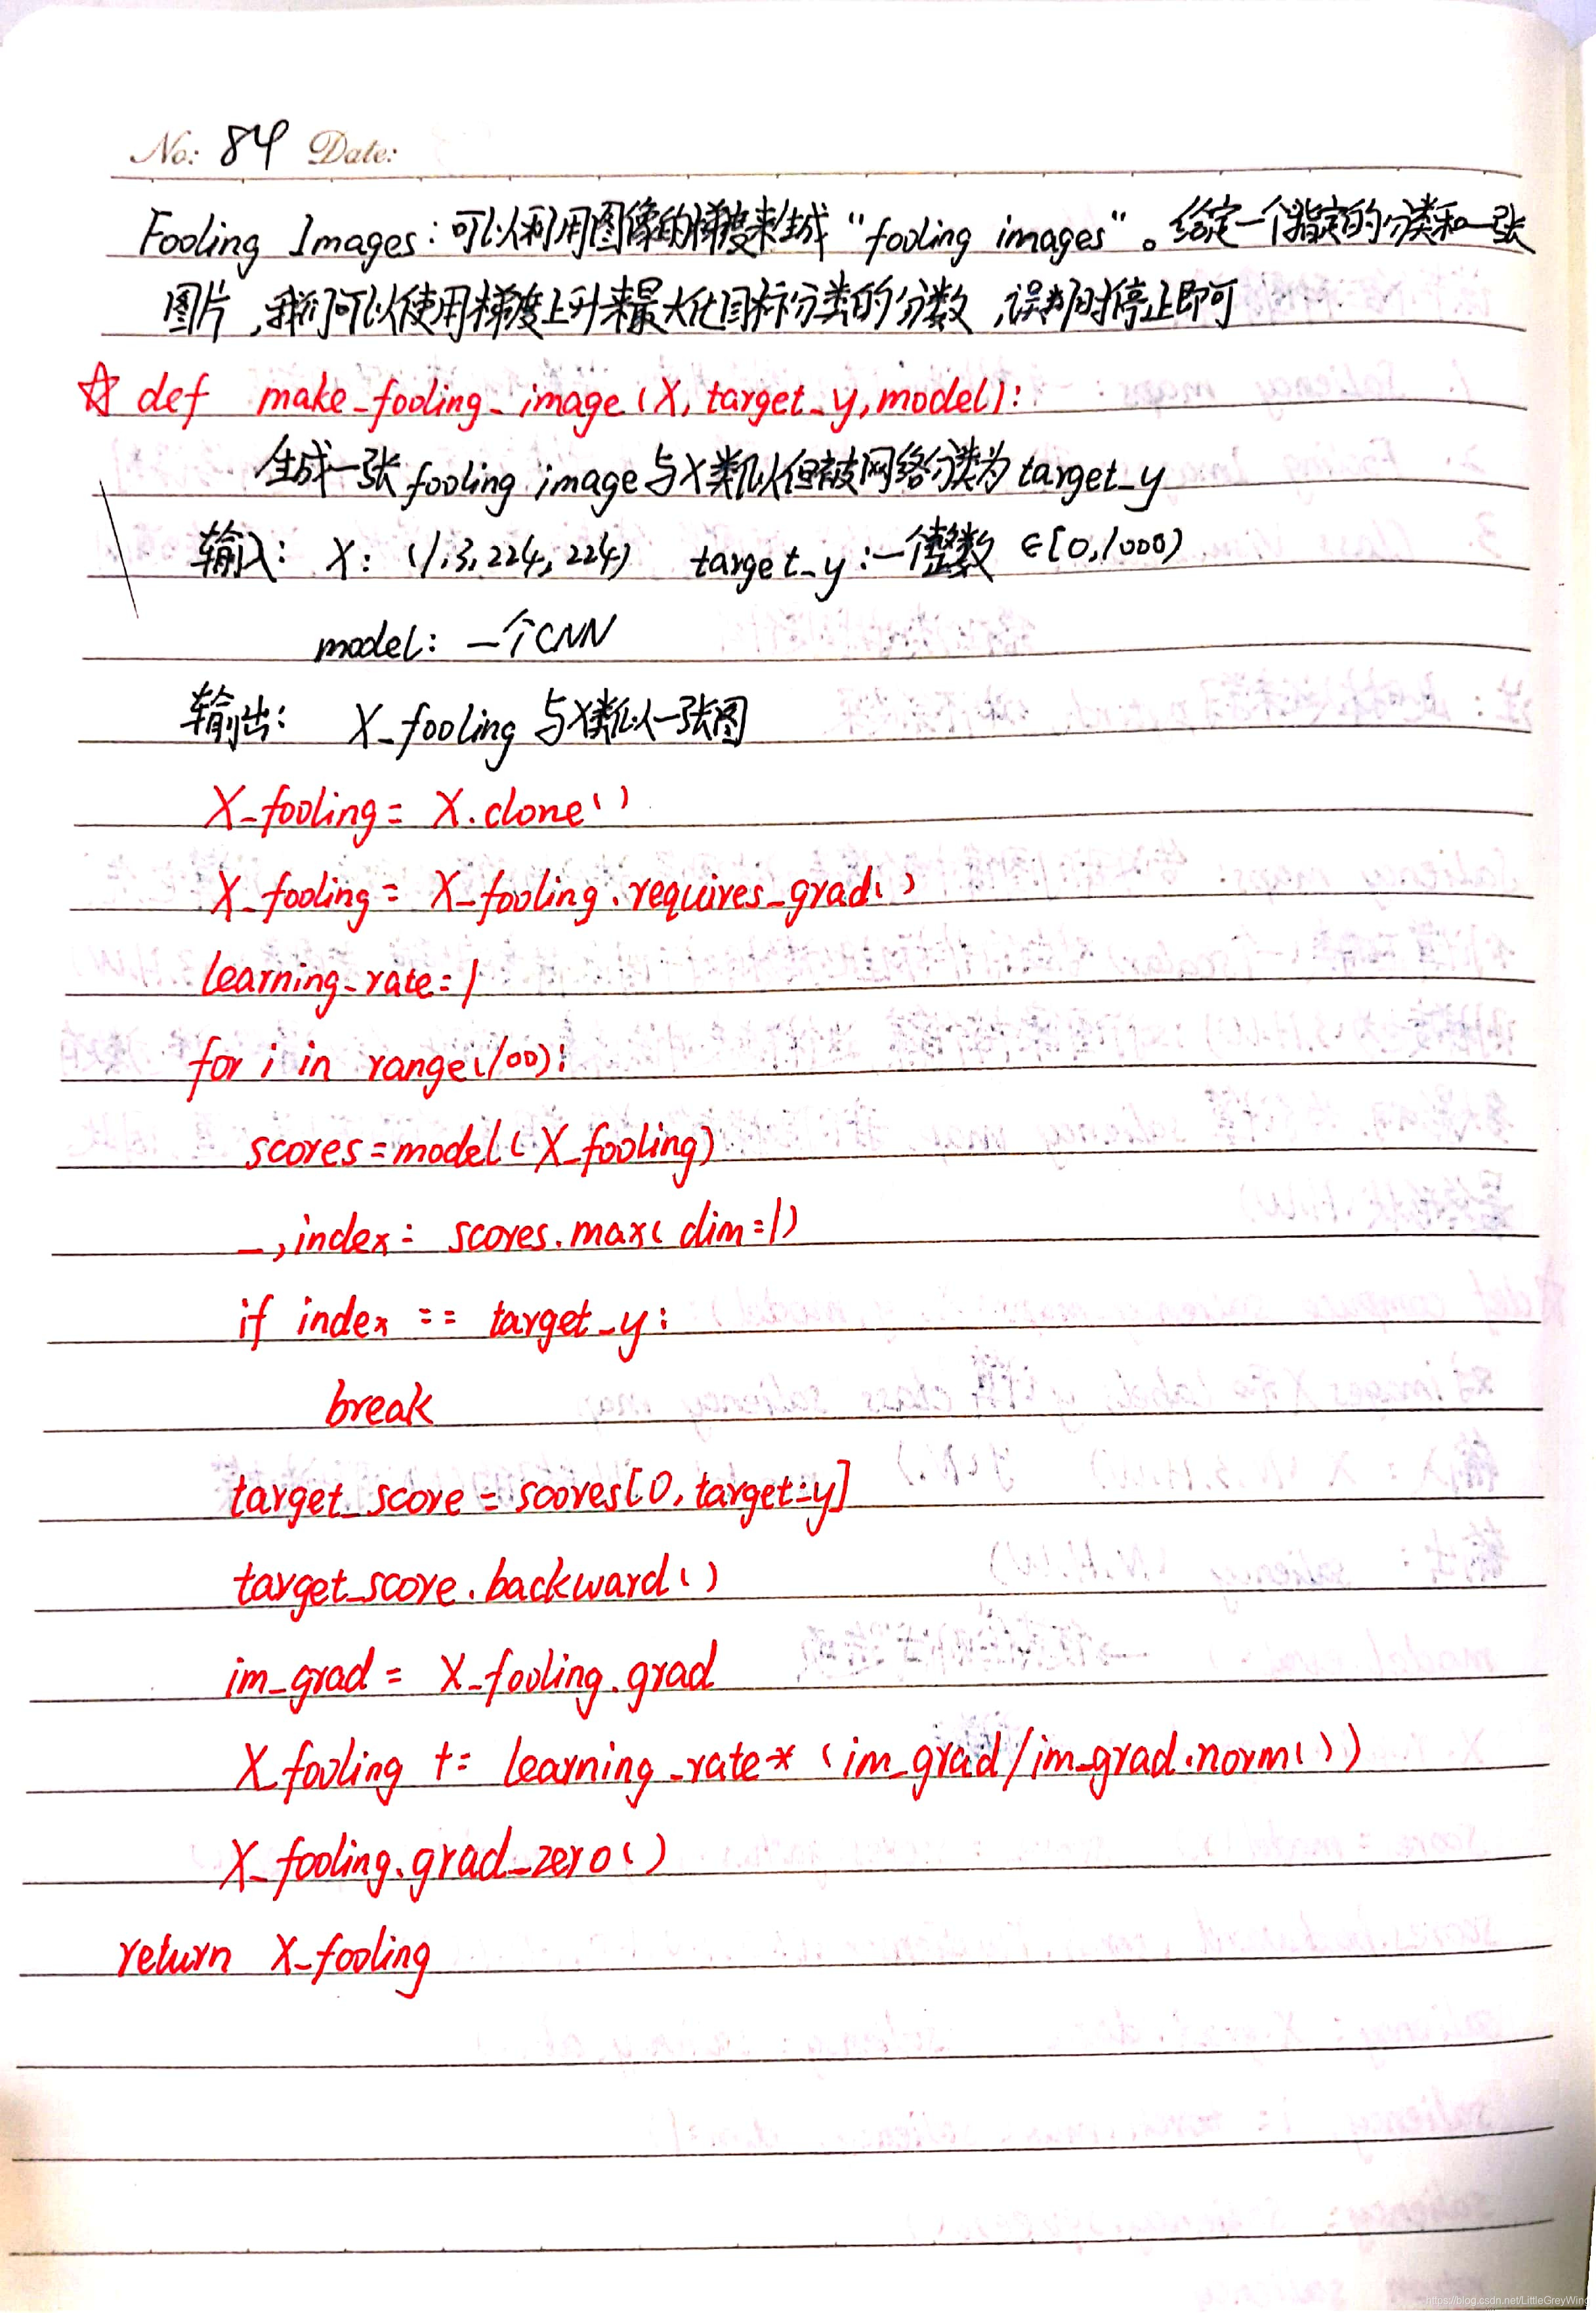 No: 84 Date:
Fooling Images：可以利用图像的梯度来生成“fooling images”。给定一个指定的分类和一张
图片，我们可以使用梯度上升来最大化目标分类的分数，误判时停止即可
☆ def make_fooling_image(X, target_y, model):
生成一张fooling image与X类似但被网络分类为target_y
输入： X: (1,3,224,224) target_y:一个整数 ∈[0,1000)
model: 一个CNN
输出： X_fooling 与X类似一张图
X_fooling = X.clone()
X_fooling = X_fooling.requires_grad()
learning_rate=1
for i in range(100):
scores=model(X_fooling)
_,index= scores.max(dim=1)
if index == target_y:
break
target_score = scores[0, target_y]
target_score.backward()
im_grad = X_fooling.grad
X_fooling += learning_rate*(im_grad/im_grad.norm())
X_fooling.grad_zero()
return X_fooling
https://blog.csdn.net/LittleGreyWing